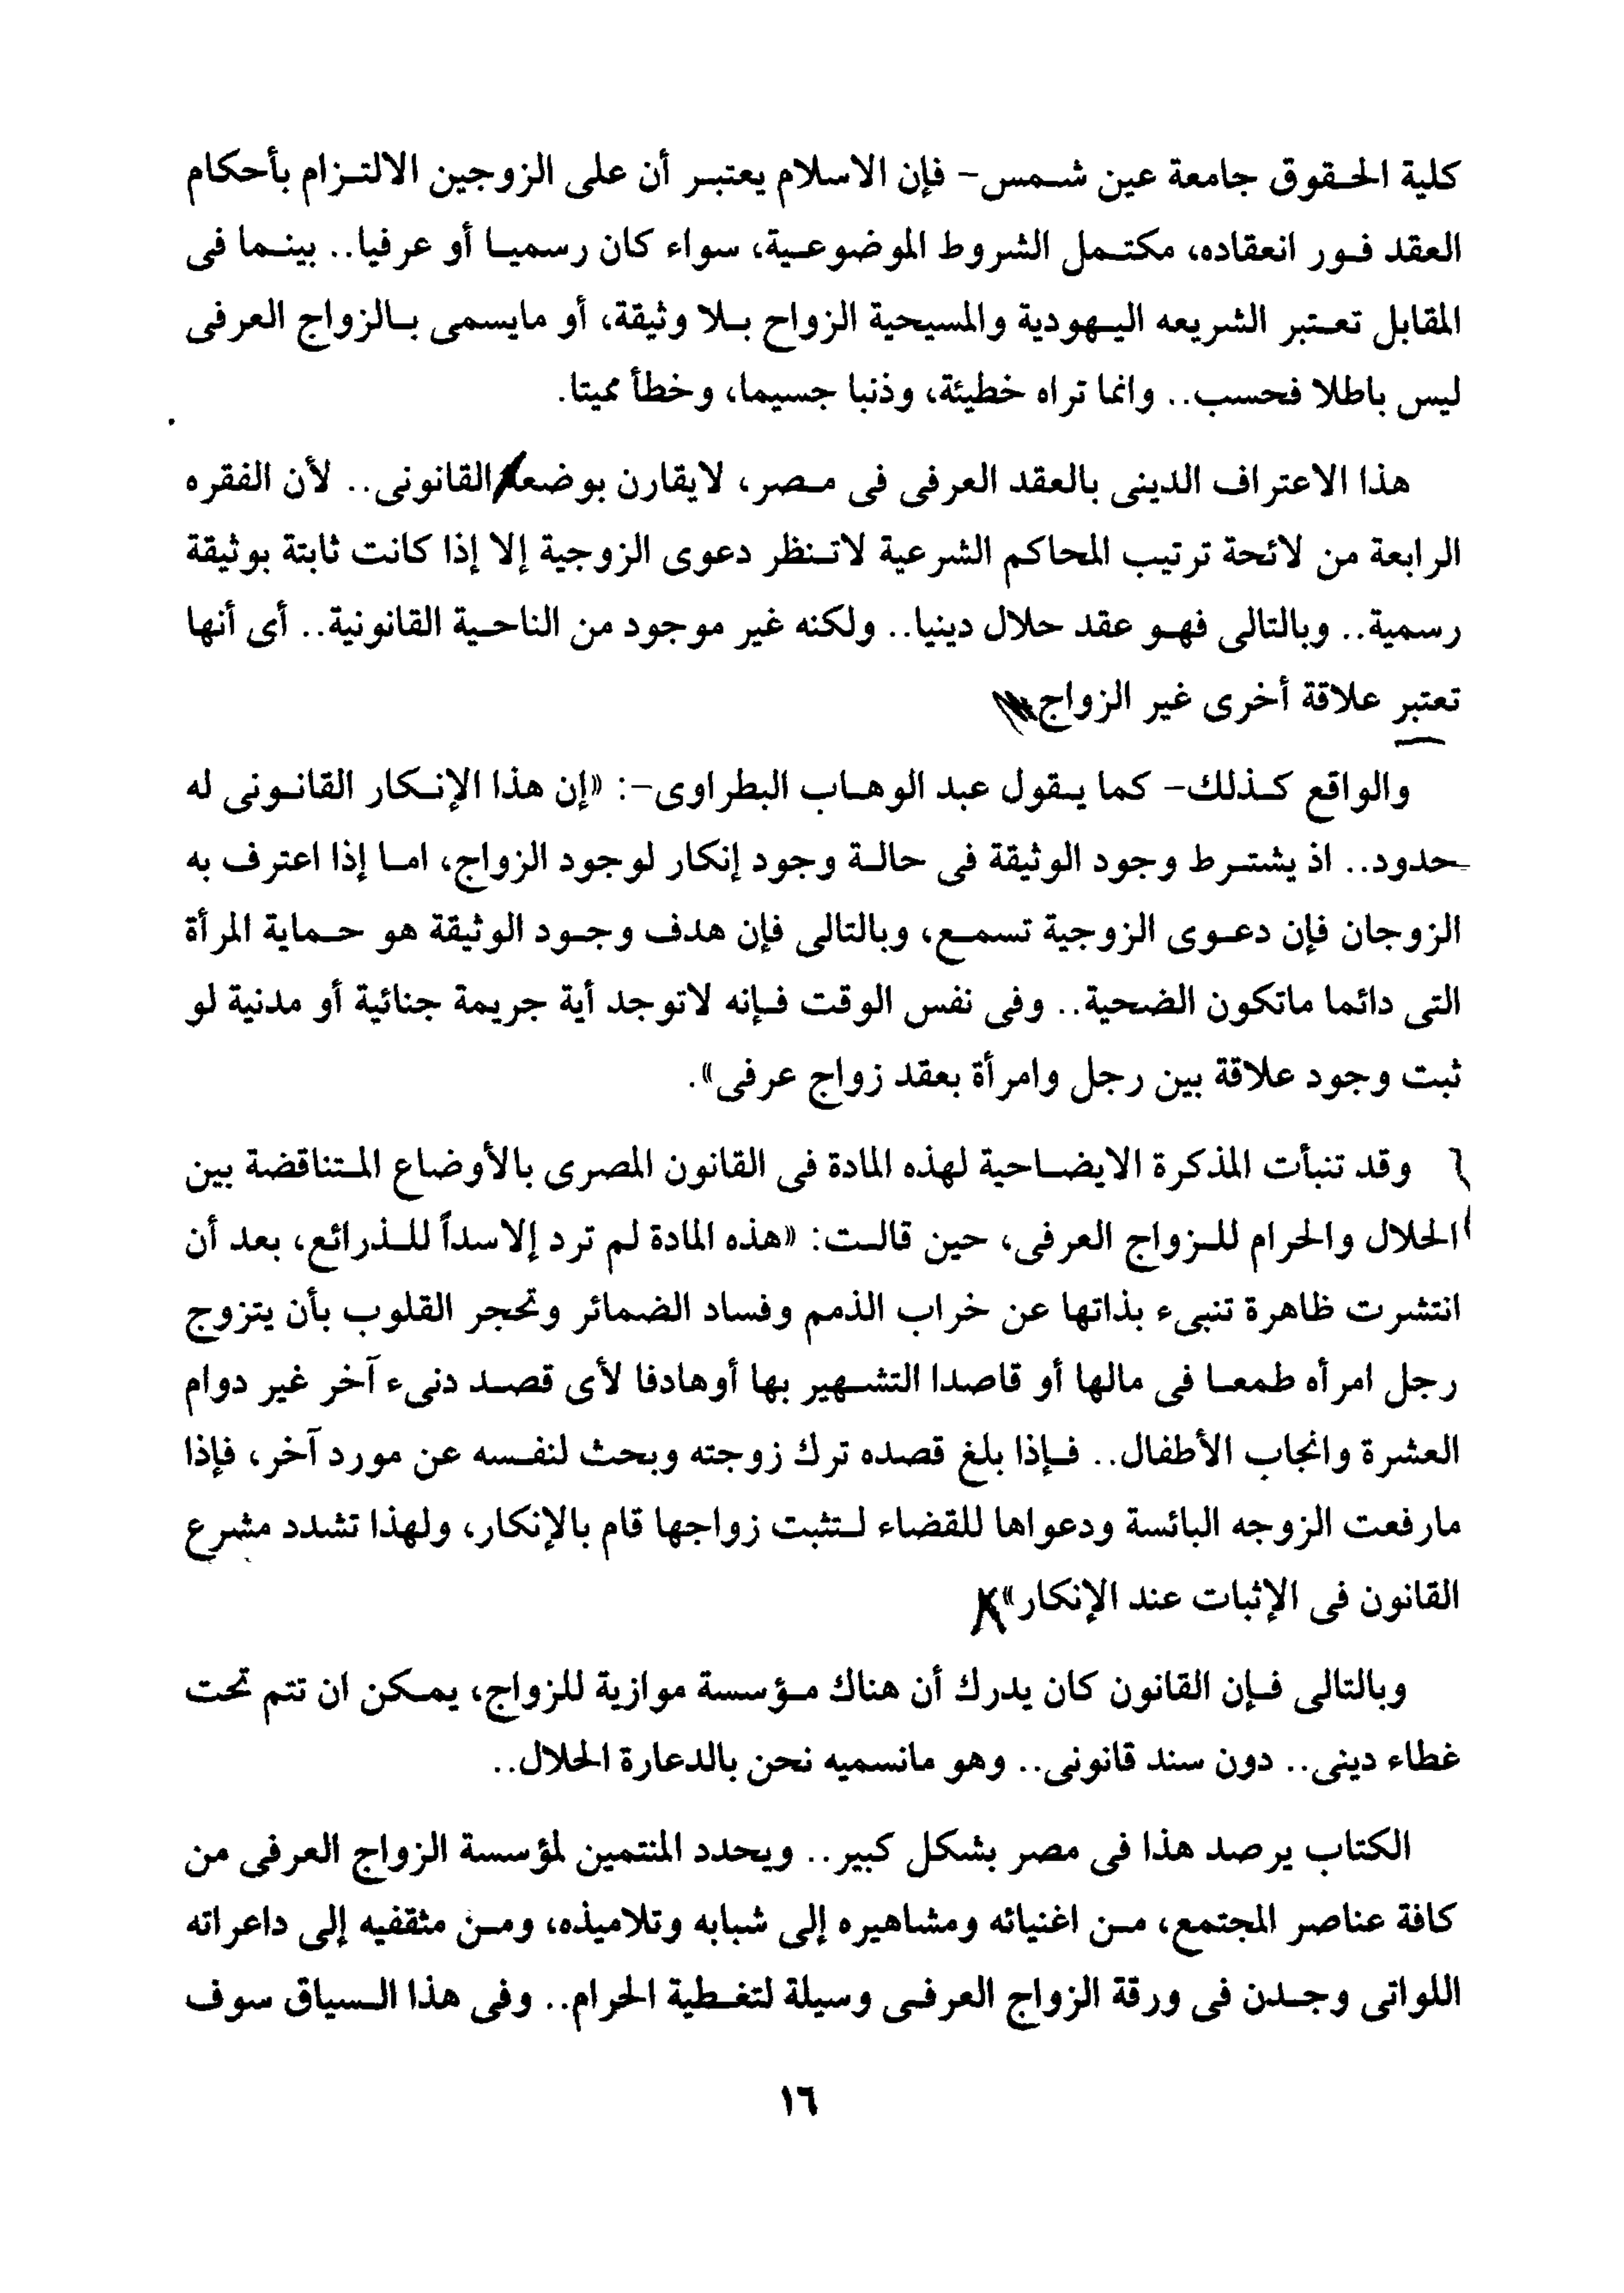 كلية الحقوق جامعة عين شمس- فإن الاسلام يعتبر أن على الزوجين الالتزام بأحكام
العقد فور انعقاده، مكتمل الشروط الموضوعية، سواء كان رسميا أو عرفيا.. بينما فى
المقابل تعتبر الشريعه اليهودية والمسيحية الزواح بلا وثيقة، أو مايسمى بالزواج العرفى
ليس باطلا فحسب.. وانما تراه خطيئة، وذنبا جسيما، وخطأ مميتا.
هذا الاعتراف الدينى بالعقد العرفى فى مصر، لايقارن بوضعه القانونى.. لأن الفقره
الرابعة من لائحة ترتيب المحاكم الشرعية لاتنظر دعوى الزوجية إلا إذا كانت ثابتة بوثيقة
رسمية.. وبالتالى فهو عقد حلال دينيا.. ولكنه غير موجود من الناحية القانونية.. أى أنها
تعتبر علاقة أخرى غير الزواج
والواقع كذلك- كما يقول عبد الوهاب البطراوى-: «إن هذا الإنكار القانونى له
حدود.. اذ يشترط وجود الوثيقة فى حالة وجود إنكار لوجود الزواج، اما إذا اعترف به
الزوجان فإن دعوى الزوجية تسمع، وبالتالى فإن هدف وجود الوثيقة هو حماية المرأة
التى دائما ماتكون الضحية.. وفى نفس الوقت فإنه لاتوجد أية جريمة جنائية أو مدنية لو
ثبت وجود علاقة بين رجل وامرأة بعقد زواج عرفى».
وقد تنبأت المذكرة الايضاحية لهذه المادة فى القانون المصرى بالأوضاع المتناقضة بين
الحلال والحرام للزواج العرفى، حين قالت: «هذه المادة لم ترد إلاسداً للذرائع، بعد أن
انتشرت ظاهرة تنبىء بذاتها عن خراب الذمم وفساد الضمائر وتحجر القلوب بأن يتزوج
رجل امرأه طمعا فى مالها أو قاصدا التشهير بها أوهادفا لأى قصد دنىء آخر غير دوام
العشرة وانجاب الأطفال.. فإذا بلغ قصده ترك زوجته وبحث لنفسه عن مورد آخر، فإذا
مارفعت الزوجه البائسة ودعواها للقضاء لتثبت زواجها قام بالإنكار، ولهذا تشدد مشرع
القانون فى الإثبات عند الإنكار»
وبالتالى فإن القانون كان يدرك أن هناك مؤسسة موازية للزواج، يمكن ان تتم تحت
غطاء دينى.. دون سند قانونى.. وهو مانسميه نحن بالدعارة الحلال..
الكتاب يرصد هذا فى مصر بشكل كبير.. ويحدد المنتمين لمؤسسة الزواج العرفى من
كافة عناصر المجتمع، من اغنيائه ومشاهيره إلى شبابه وتلاميذه، ومن مثقفيه إلى داعراته
اللواتى وجدن فى ورقة الزواج العرفى وسيلة لتغطية الحرام.. وفى هذا السياق سوف
١٦